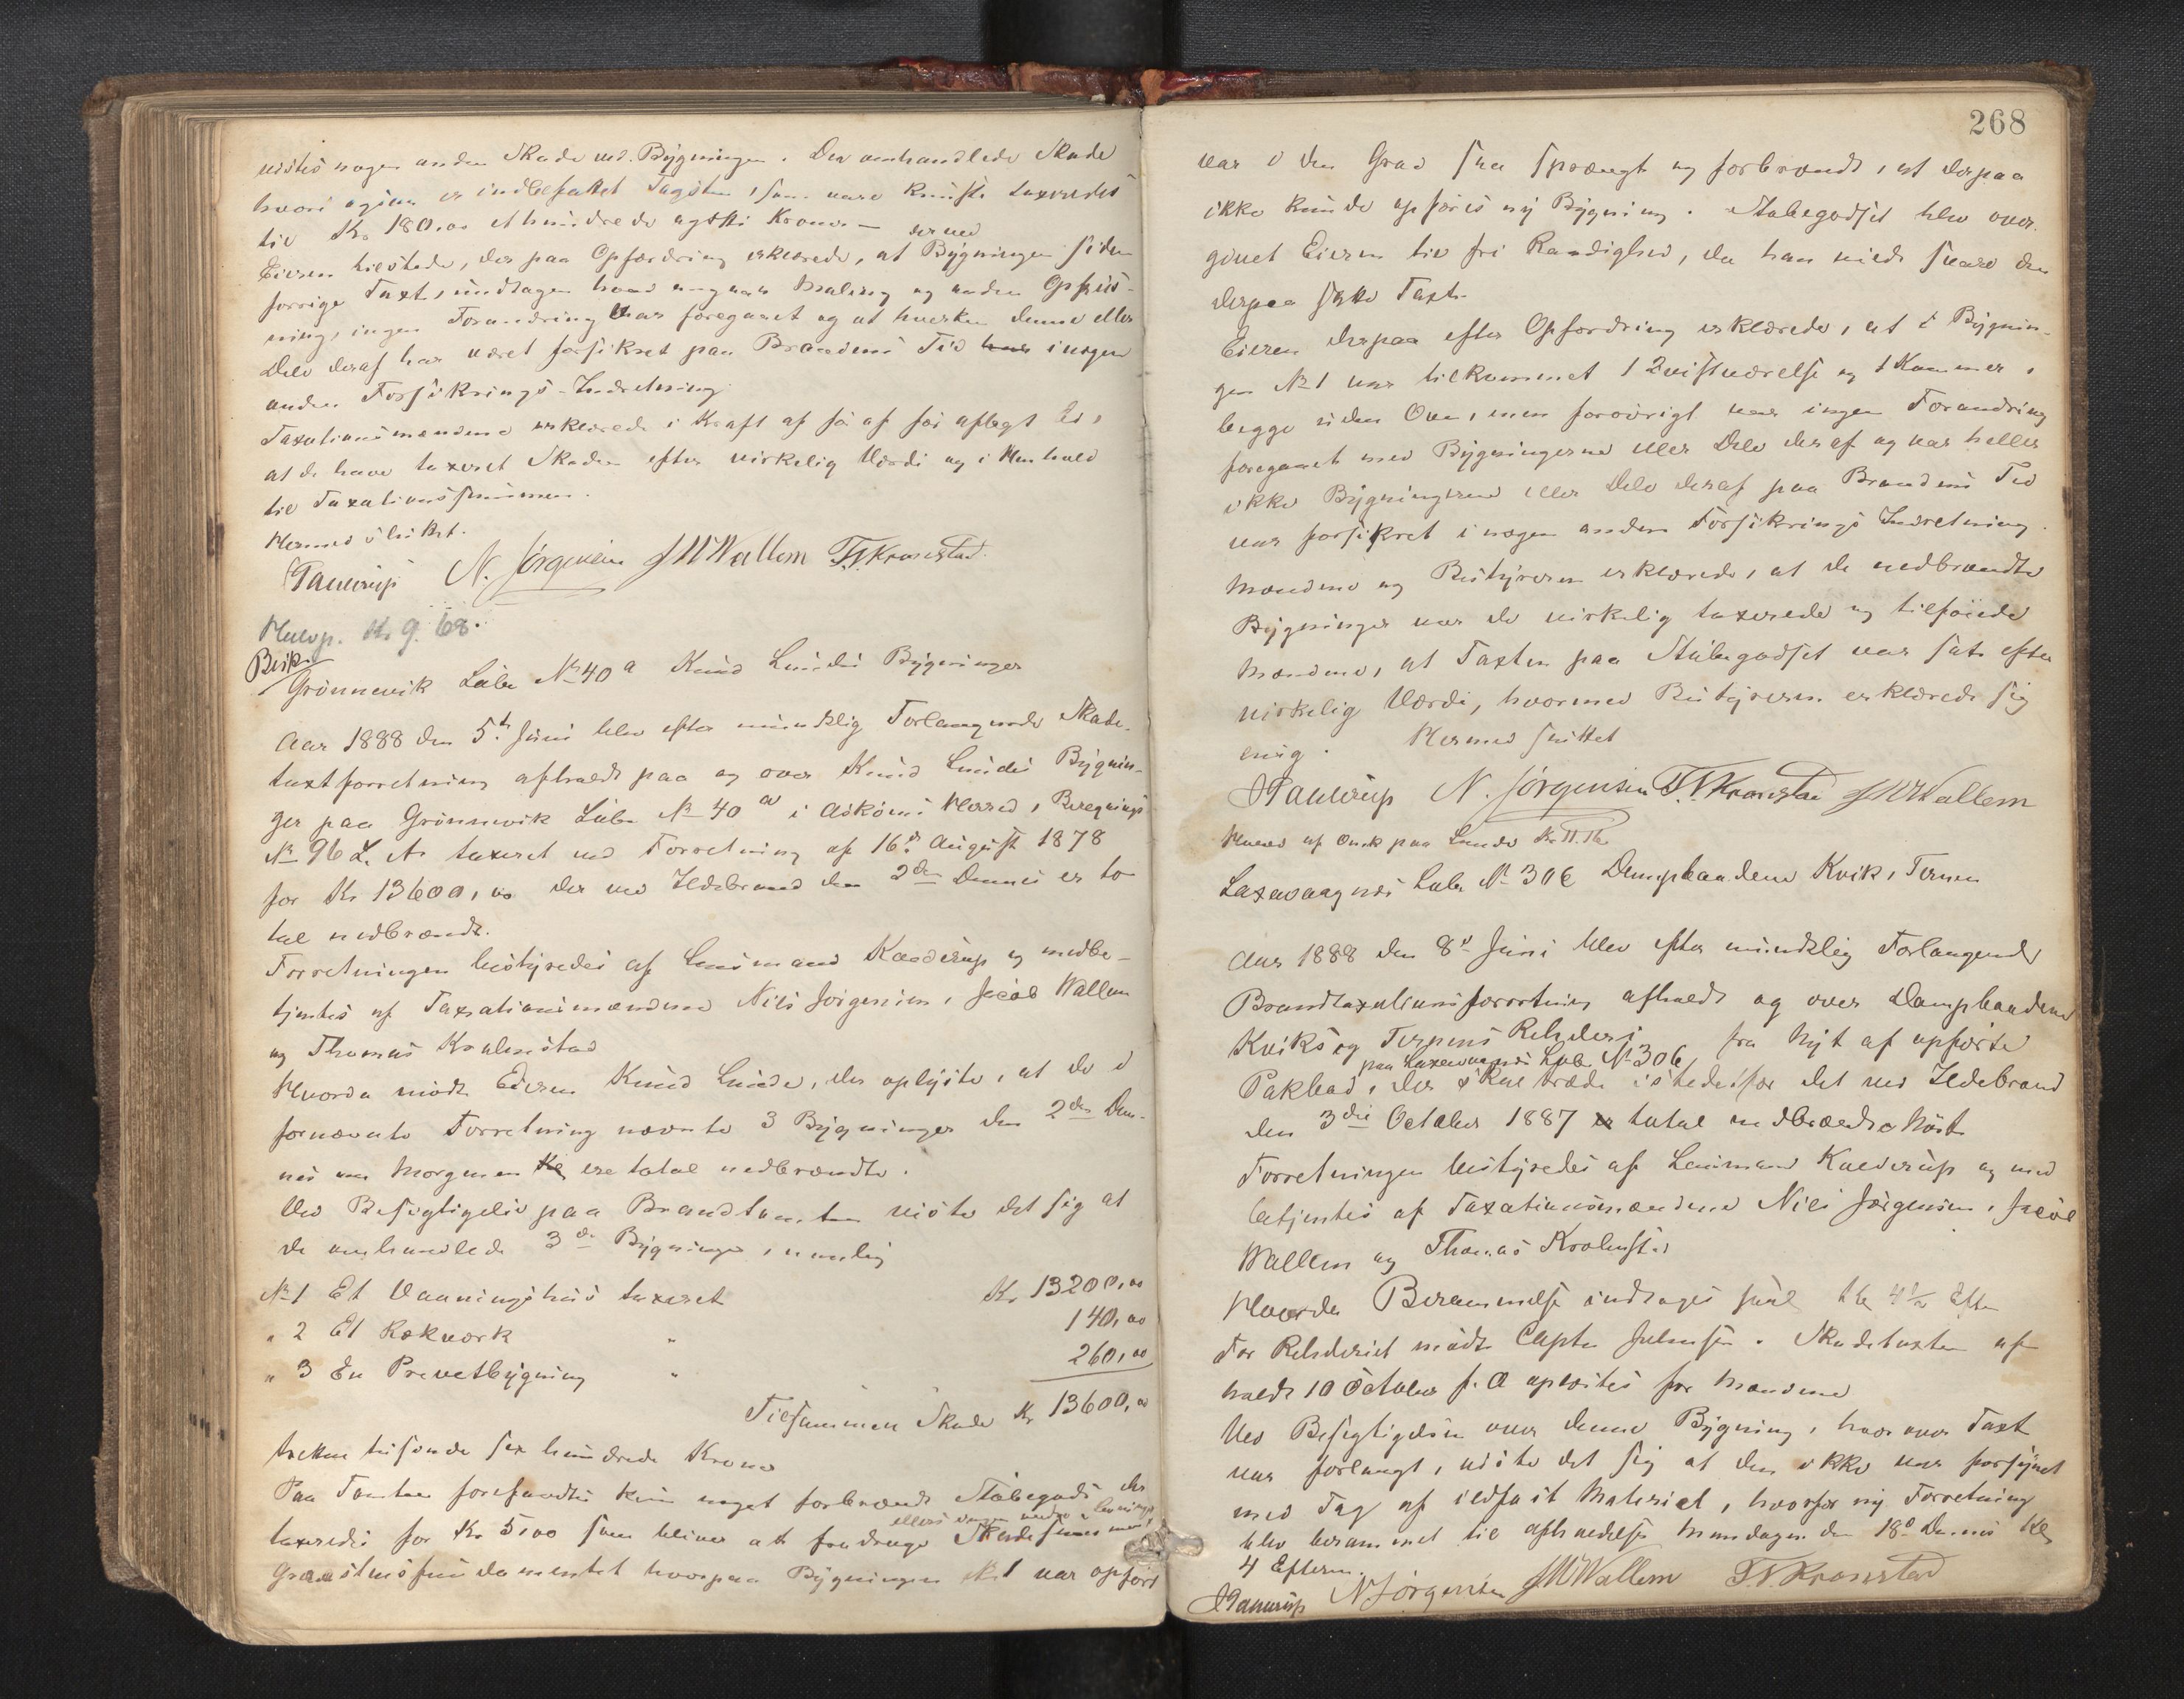 nogen anden Skade ved Bygningen. Den omhandlede Skade
hvori ogsaa er indbefattet Tagsten, som vare knuste taxeredes
til Kr. 180,00 et hundrede og otti Kroner —
Eieren tilstede, der paa Opfordring erklærede, at Bygningen siden
forrige Taxt, undtagen hvad angaar Maling og anden Opfrisk-
ning, ingen Forandring har foregaaet og at hverken denne eller
Dele deraf har været forsikret paa Brandens Tid i nogen
anden Forsikrings-Indretning.
Taxationsmændene erklærede i Kraft af før aflagt Ed,
at de have taxeret Skaden efter virkelig Værdi og i Henhold
til Taxationssummen.
Hermed sluttet.
N. Jørgensen J M Wallem T. N. Kronstad.
Kr 9.68.
Grønnevik Løbe No 40 a Knud Lunds Bygninger
Aar 1888 den 5te Juni blev efter mundtlig Forlangende Skade-
taxtforretning afholdt paa og over Knud Lundes Bygnin-
ger paa Grønnevik Løbe No 40 a i Askøens Herred,
No 96 L. A. taxeret ved Forretning af 16de August 1878
for Kr 13600,00 der ved Ildebrand den 2den Dennes er to-
tal nedbrændt.
Forretningen bestyredes af Lensmand og medbe-
tjentes af Taxationsmændene Nils Jørgensen, Jacob Wallem
og Thomas Kronstad
Hvorda mødte Eieren Knud Lunde, der oplyste, at de i
fornævnte Forretning nævnte 3 Bygninger den 2den Den-
nes om Morgenen ere total nedbrændte.
Ved Besigtigelse paa Brandtomten viste det sig at
de omhandlede 3de Bygninger, nemlig
No 1 Et Vaaningshus taxeret Kr. 13200,00
" 2 Et Rækværk " 140,00
" 3 En Privetbygning " 260,00
Tilsammen Skade Kr 13600,00
tretten tusinde sex hundrede Kroner
Paa Tomten forefandtes kun noget forbrændt Støbegods der
taxeredes for Kr 5,00 som bliver at fradrage Skadesummen
Graastensfundamentet hvorpaa Bygningen No 1 var opført
268
var i den Grad saa sprængt og forbrændt, at derpaa
ikke kunde opføres ny Bygning. Støbegodset blev over-
givet Eieren til fri Raadighed, da han vilde svare den
derpaa satte Taxt.
Eieren derpaa efter Opfordring erklærede, at i Bygnin-
gen No 1 var tilkommet 1 Qvistværelse og 1 Kammer,
begge uden Ovn, men forøvrigt var ingen Forandring
foregaaet med Bygningerne eller Dele deraf og var heller
ikke Bygningerne eller Dele deraf paa Brandens Tid
var forsikret i nogen anden Forsikrings Indretning.
Mændene og Bestyreren erklærede, at de nedbrændte
Bygninger var de virkelig taxerede og tilføiede
Mændene, at Taxten paa Støbegodset var sat efter
virkelig Værdi, hvormed Bestyreren erklærede sig
enig. Hermed sluttet
N. Jørgensen T. N. Kronstad J M Wallem
Laxevaagnes Løbe No 306 Dampbaadene Kvik, Ternen
Aar 1888 den 8de Juni blev efter mundtlig Forlangende
Brandtaxationsforretning afholdt og over Dampbaadene
Kviks og Ternens Rehderi fra Nyt af opførte
paa Laxevaagnes Løbe No 306
Pakbod, der skal træde istedetfor det ved Ildebrand
den 3die October 1887 total nedbrændte
Forretningen bestyredes af Lensmand og med-
betjentes af Taxationsmændene Nils Jørgensen, Jacob
Wallem og Thomas Kronstad
Hvorda Berammelse indtages Kl 4½ Efter
For Rehderiet mødte Capt. Johnsen. Skadetaxten af-
holdt 10 October f. A oplæstes for Mændene
Ved Besigtigelsen over denne Bygning, hvorover Taxt
var forlangt, viste det sig at den ikke var forsynet
med Tag af ildfast Materiel, hvorfor ny Forretning
blev berammet til afholdelse Mandagen den 18de Dennes Kl
4 Efterm.
N Jørgensen J M Wallem T. N. Kronstad